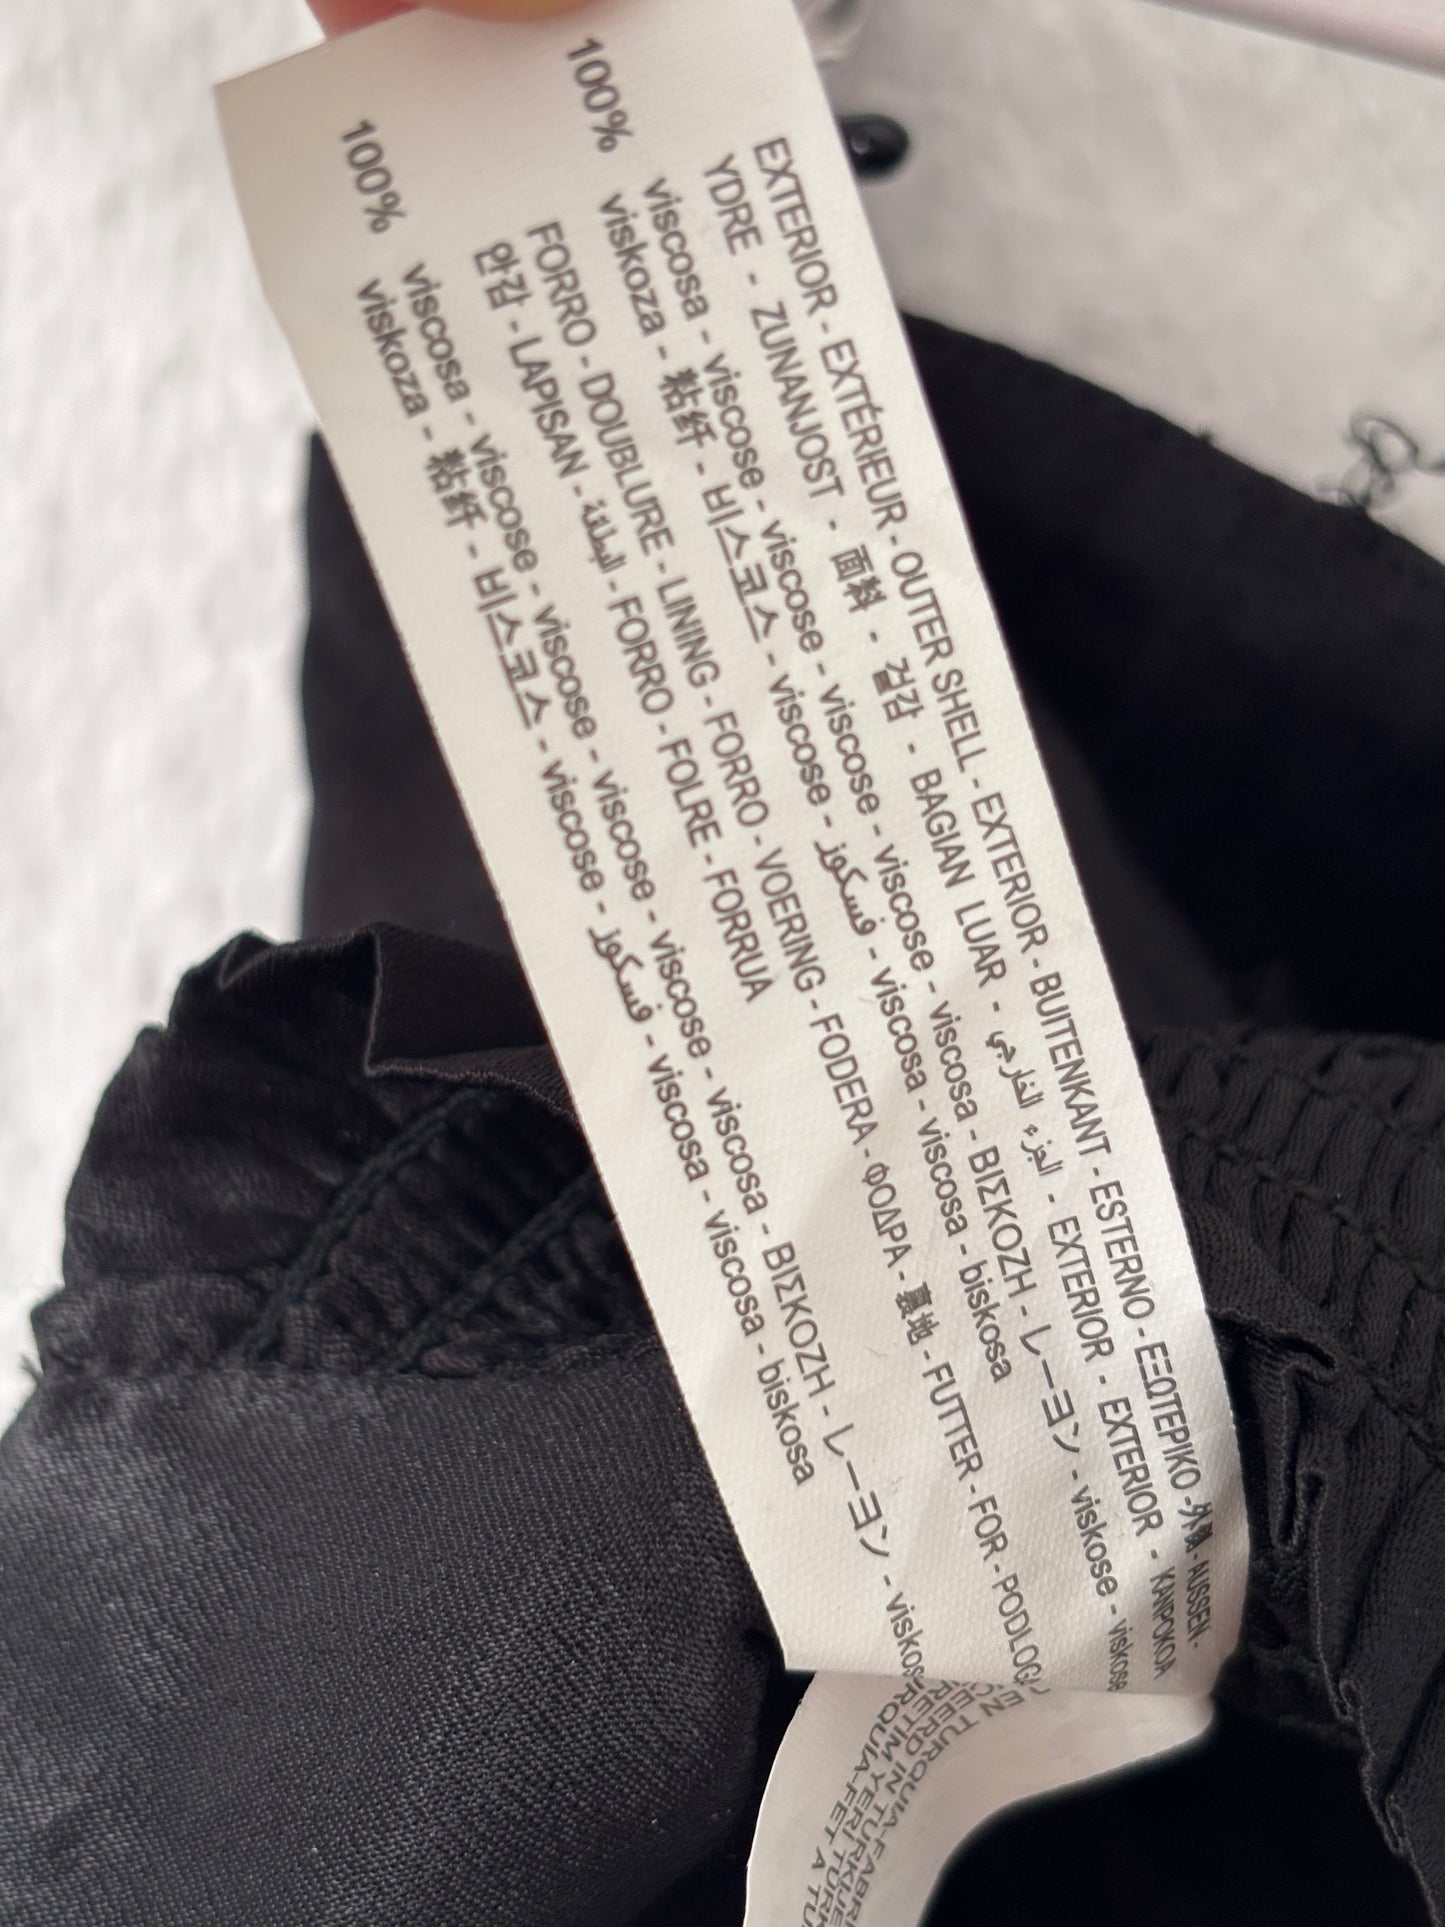 EXTERIOR - EXTÉRIEUR - OUTER SHELL - EXTERIOR - BUITENKANT - ESTERNO - ΕΞΩΤΕΡΙΚΟ - 外側 - AUSSEN -
YDRE - ZUNANJOST - 面料 - 겉감 - BAGIAN LUAR - الجزء الخارجي - EXTERIOR - EXTERIOR - KANPOKOA
100% viscosa - viscose - viscose - viscose - viscose - viscosa - ΒΙΣΚΟΖΗ - レーヨン - viskose - viskose
viskoza - 粘纤 - 비스코스 - viscose - فسكوز - viscosa - viscosa - biskosa
FORRO - DOUBLURE - LINING - FORRO - VOERING - FODERA - ΦΟΔΡΑ - 裏地 - FUTTER - FOR - PODLOGA
안감 - LAPISAN - البطانة - FORRO - FOLRE - FORRUA
100% viscosa - viscose - viscose - viscose - viscose - viscosa - ΒΙΣΚΟΖΗ - レーヨン -
viskoza - 粘纤 - 비스코스 - viscose - فسكوز - viscosa - viscosa - biskosa
EN TURQUIA-FABRI
IN TURKIJE
YERI TÜRK
RQUIA-FET A TU